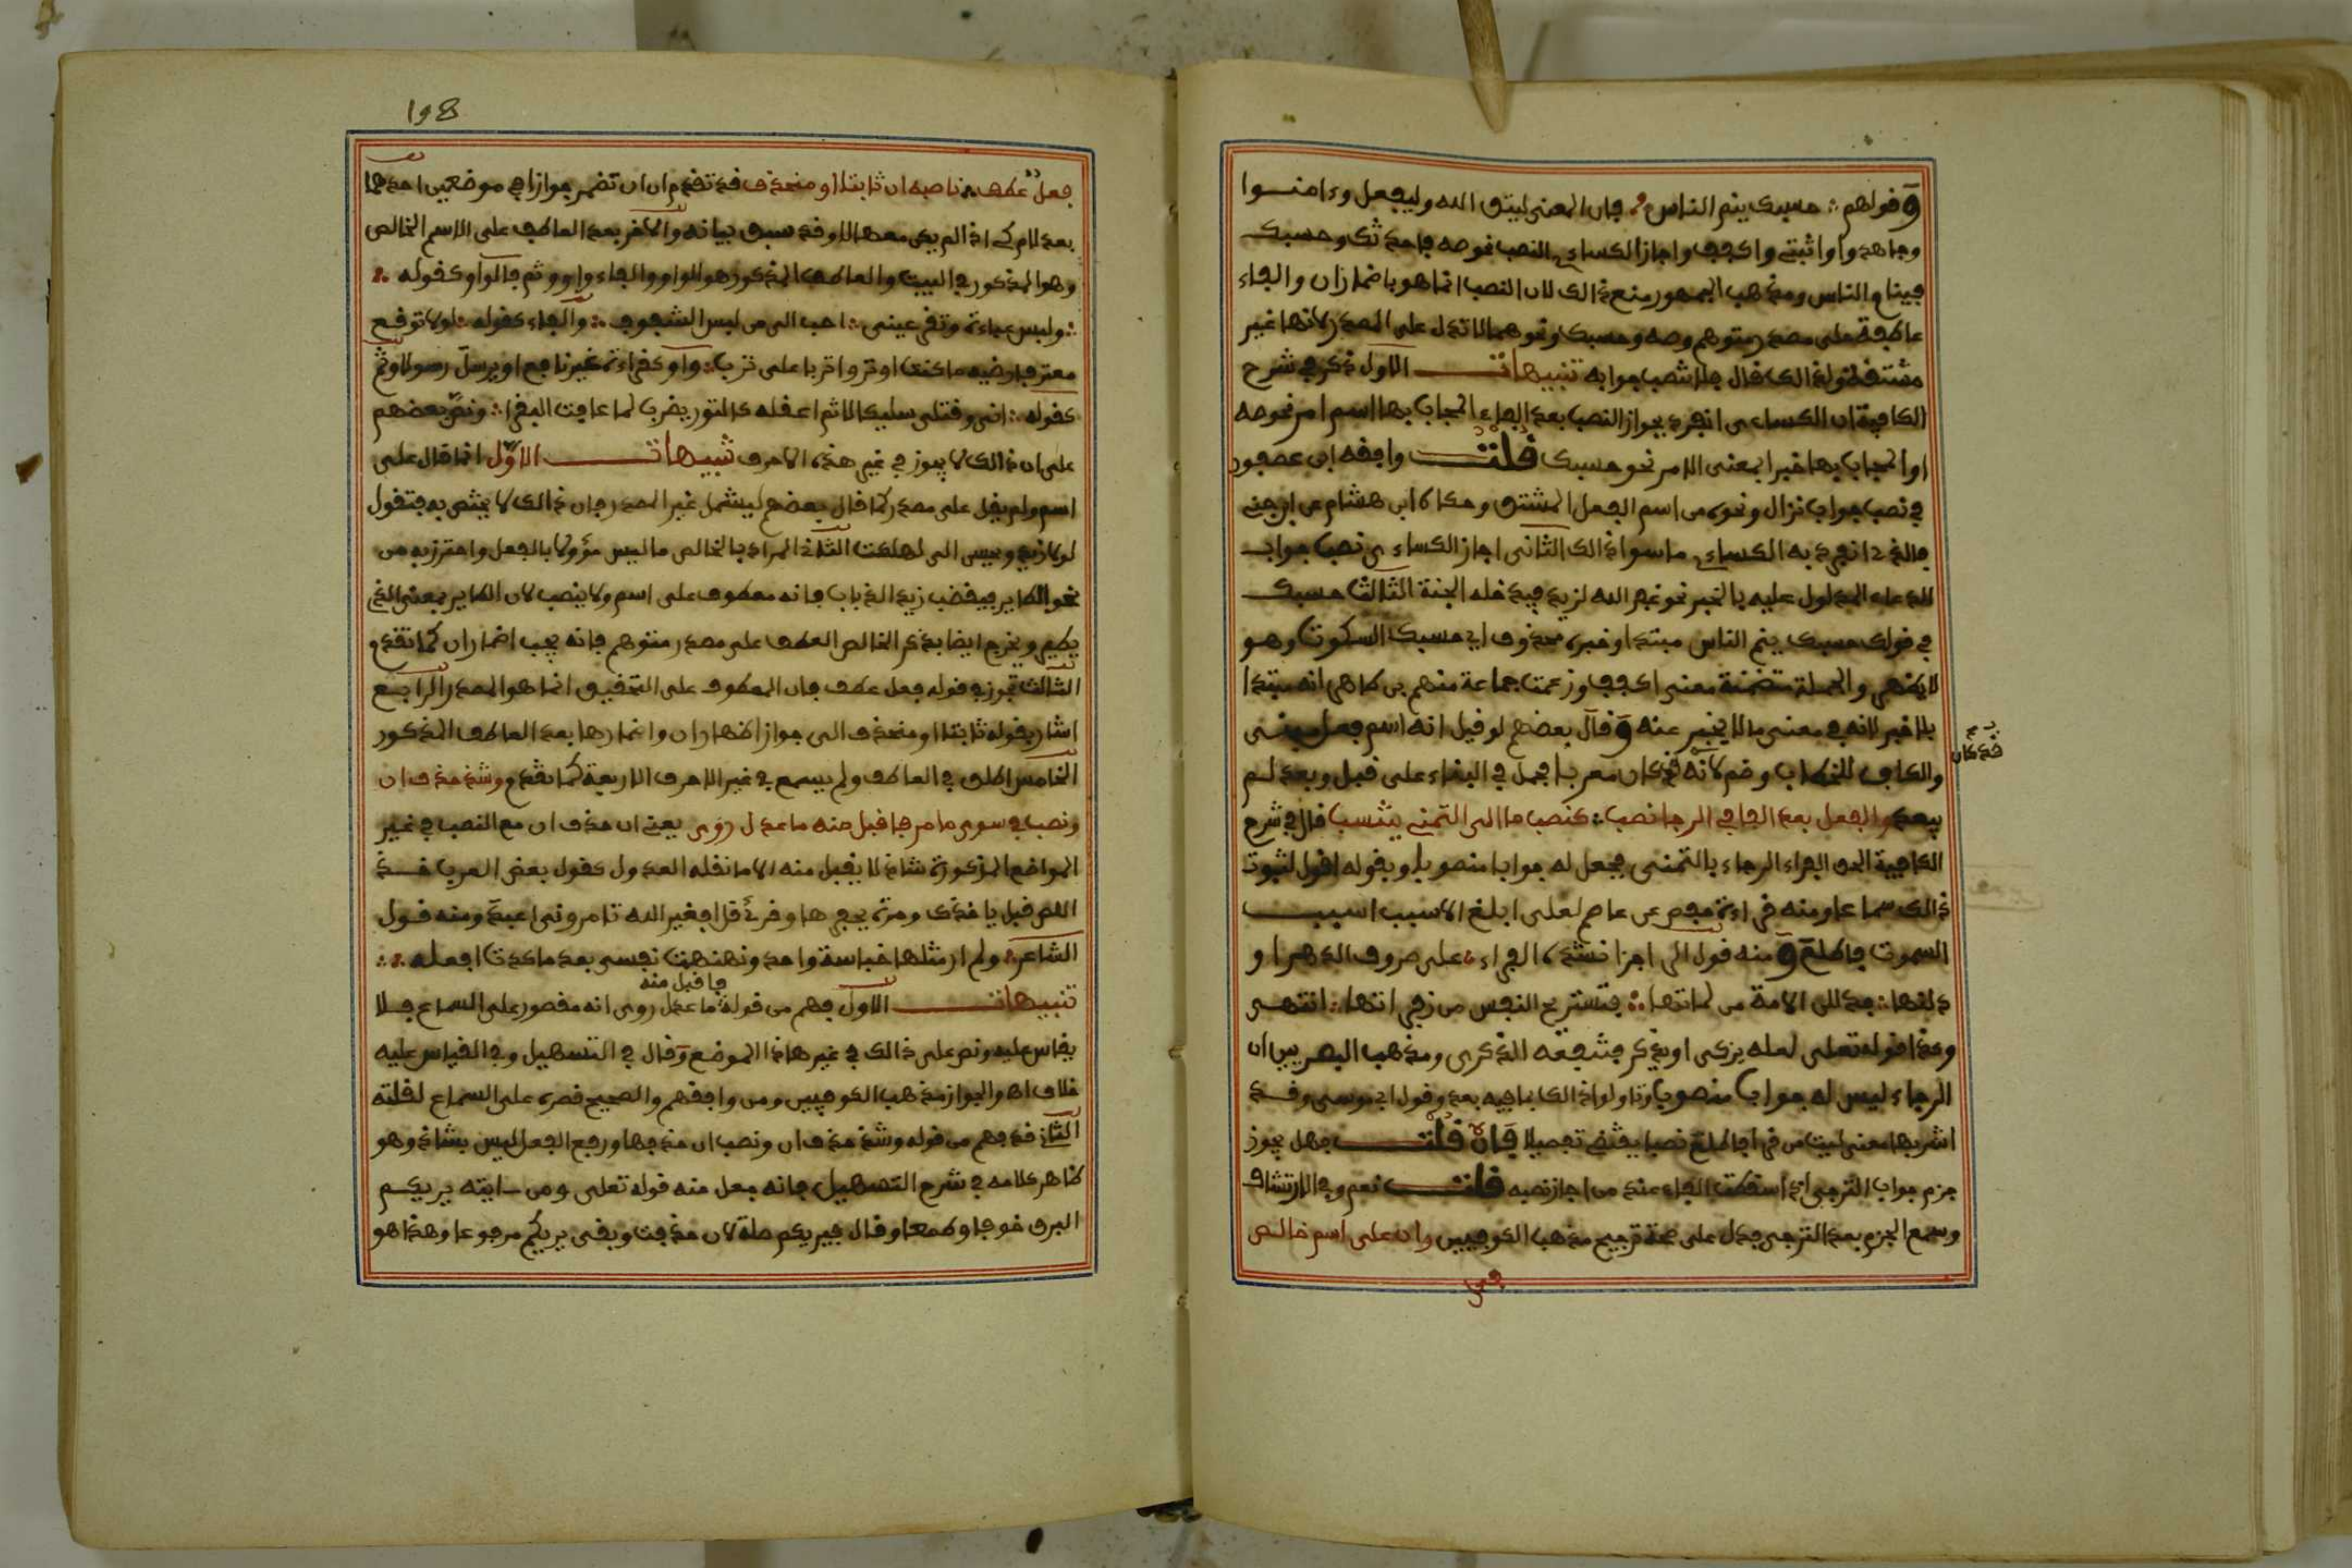 وقولهم حسبك ينم الناس فإن المعنى ليتق الله وليفعل وءامنوا
وجاهدوا واثبتي واكفف وأجاز الكسائي النصب نحو صه فأحدثك وحسبك
فينام الناس ومذهب الجمهور منع ذالك لان النصب انما هو باضمار ان والفاء
عاطفة على مصدر متوهم وصه وحسبك ونحوهما لا تدل على المصدر لانها غير
مشتقة ولذالك قال فلا تنصب جوابه تنبيهات الاول ذكر في شرح
الكافية ان الكساءي انفرد بجواز النصب بعد الفاء المجاب بها اسم امر نحو صه
او المجاب بها خبر بمعنى الامر نحو حسبك قلت وافقه ابن عصفور
في نصب جواب نزال ونحوه من اسم الفعل المشتق وحكاه ابن هشام عن ابن جني
فالذي انفرد به الكساءي ما سوا ذالك الثاني اجاز الكساءي نصب جواب
الدعاء المدلول عليه بالخبر نحو غفر الله لزيد فيدخله الجنة الثالث حسبك
في قولك حسبك ينم الناس مبتدا وخبره محذوف اي حسبك السكوت وهو
لا يظهر والجملة متضمنة معنى اكفف وزعمت جماعة منهم بن طاهر انه مبتدا
بلا خبر لانه في معنى ما لا يخبر عنه وقال بعضهم لو قيل انه اسم فعل مبني
والكاف للخطاب وضم لانه قد كان معربا فحمل في البناء على قبل وبعد لم
يبعد والفعل بعد الفا في الرجا نصب كنصب ما الى التمني ينتسب قال في شرح
قد كان
الكافية الحق الفراء الرجاء بالتمني فجعل له جوابا منصوبا وبقوله اقول لثبوت
ذالك سماعا ومنه قراءة حفص عن عاصم لعلى ابلغ الاسبب اسبب
السموت فاطلع ومنه قول الراجز انشده الفراء على صروف الدهر او
دلتها يدللن الامة من لماتها فتستريح النفس من زفراتها انتهى
وكذا قوله تعلى لعله يزكى او يذكر فتنفعه الذكرى ومذهب البصريين ان
الرجاء ليس له جواب منصوب وتاولوا ذالك بما فيه بعد وقول ابي موسى وقد
اشربها معنى ليت من قرا فاطلع نصبا يقتضي تفصيلا فان قلت فهل يجوز
جزم جواب الترجي اذا سقطت الفاء عند من اجاز نصبه قلت نعم وفي الارتشاف
وسمع الجزم بعد الترجي فدل على صحة ترجيح مذهب الكوفيين وان على اسم خالص
198
فعل عطف ناصبه ان ثابتا او منحذف قد تقدم ان ان تضمر جوازا في موضعين احدهما
بعد لام كي اذا لم يكن معها لا وقد سبق بيانه والاخر بعد العاطف على الاسم الخالص
وهو المذكور في البيت والعاطف المذكور هو الواو والفاء واو وثم فالواو كقوله
ولبس عباءة وتقر عيني احب الي من لبس الشفوف والفاء كقوله لولا توقع
معتر فارضيه ما كنت اوثر اترابا على ترب واو كقراءة غير نافع او يرسل رسولا وثم
كقوله اني وقتلي سليكا ثم اعقله كالثور يضرب لما عافت البقر ونص بعضهم
على ان ذالك لا يجوز في غير هذه الاحرف تنبيهات الاول انما قال على
اسم ولم يقل على مصدر كما قال بعضهم ليشمل غير المصدر فان ذالك لا يختص به فتقول
لولا زيد ويحسن الي لهلكت الثاني المراد بالخالص ما ليس مؤولا بالفعل واحترز به من
نحو الطاير فيغضب زيد الذباب فانه معطوف على اسم ولا ينصب لان الطاير بمعنى الذي
يطير ويخرج ايضا بذكر الخالص العطف على مصدر متوهم فانه يجب اضمار ان كما تقدم
الثالث تجوز في قوله فعل عطف فان المعطوف على التحقيق انما هو المصدر الرابع
اشار بقوله ثابتا او منحذف الى جواز اظهار ان واضمارها بعد العاطف المذكور
الخامس اطلق في العاطف ولم يسمع في غير الاحرف الاربعة كما تقدم وشذ حذف ان
ونصب في سوى ما مر فاقبل منه ما عدل روى يعني ان حذف ان مع النصب في غير
المواضع المذكورة شاذ لا يقبل منه الا ما نقله العدول كقول بعض العرب خذ
اللص قبل ياخذك ومره يحفرها وقرئ قل افغير الله تامروني اعبد ومنه قول
الشاعر ولم ار مثلها خباسة واحد ونهنهت نفسي بعد ما كدت افعله
فاقبل منه
تنبيهات الاول فهم من قوله ما عدل روى انه مقصور على السماع فلا
يقاس عليه ونص على ذالك في غير هاذا الموضع وقال في التسهيل وفي القياس عليه
خلاف اه والجواز مذهب الكوفيين ومن وافقهم والصحيح قصره على السماع لقلته
الثاني قد فهم من قوله وشذ حذف ان ونصب ان حذفها ورفع الفعل ليس بشاذ وهو
ظاهر كلامه في شرح التسهيل فانه جعل منه قوله تعلى ومن ءايته يريكم
البرق خوفا وطمعا وقال فيريكم صلة لان حذفت وبقي يريكم مرفوعا وهذا هو